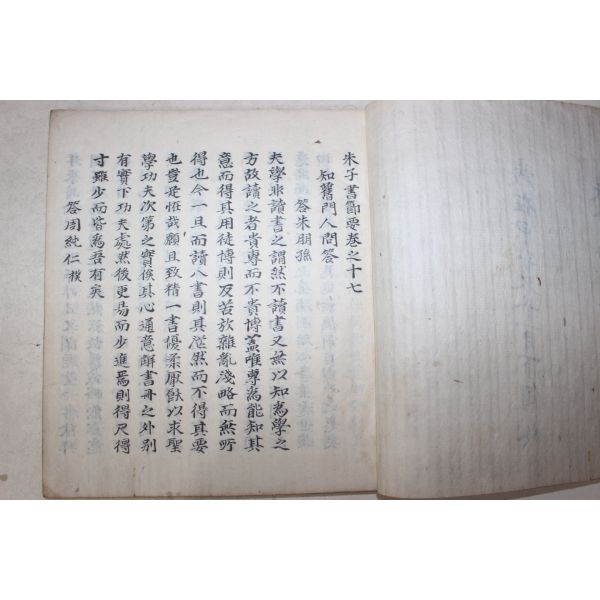 朱子書節要卷之十七
知舊門人問答
答朱朋孫
夫學非讀書之謂然不讀書又無以知爲學之
方故讀之者貴專而不貴博蓋唯專爲能知其
意而得其用徒博則反苦於雜亂淺略而無所
得也今一旦而讀八書則其茫然而不得其要
也豈足恠哉願且致精一書優柔厭飫以求聖
學功夫次第之實俟其心通意解書冊之外別
有實下功夫處然後更易而少進焉則得尺得
寸雖少而皆爲吾有矣
答周純仁